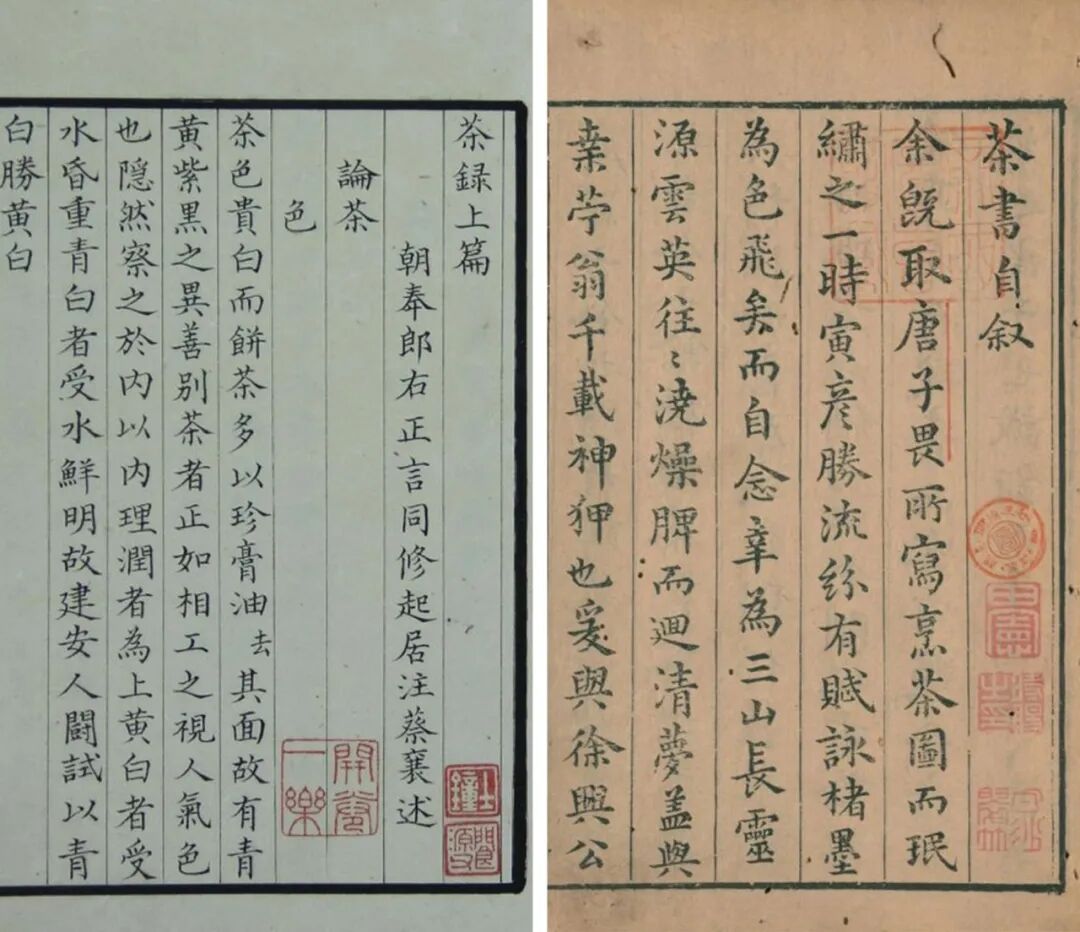 茶録上篇
朝奉郎右正言同修起居注蔡襄述
論茶
色
茶色貴白而餅茶多以珍膏油去其面故有青
黄紫黑之異善別茶者正如相工之視人氣色
也隠然察之於内以内理潤者為上黄白者受
水昏重青白者受水鮮明故建安人闘試以青
白勝黄白
開卷一樂
士鐘
閬源父
茶書自叙
余既取唐子畏所寫烹茶圖而珉
繡之一時寅彦勝流紛有賦詠楮墨
為色飛矣而自念幸為三山長靈
源雲英往〻澆燥脾而迴清夢盖與
桒苧翁千載神狎也爰與徐興公